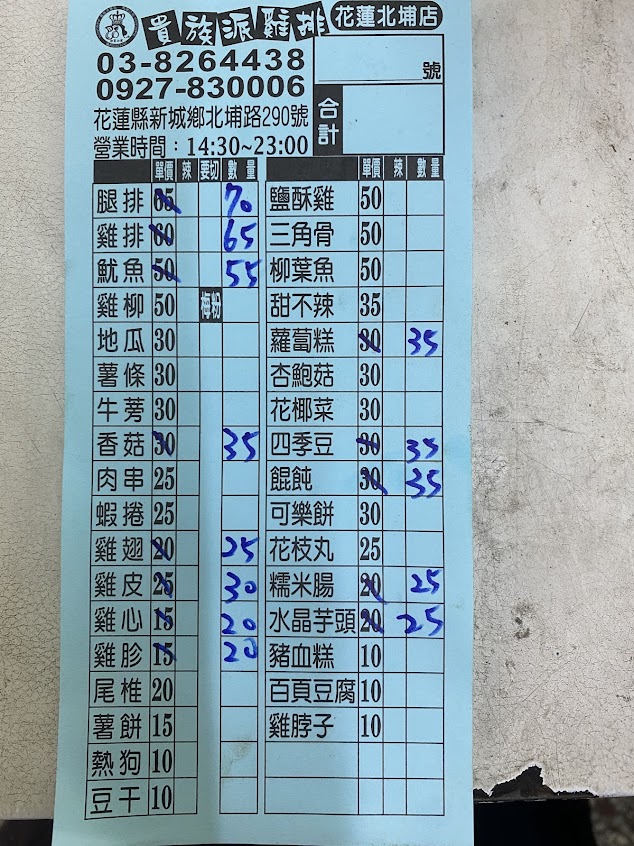 貴族派雞排 花蓮北埔店
03-8264438
0927-830006
號
花蓮縣新城鄉北埔路290號
合計
營業時間：14:30~23:00
單價 辣 要切 數量 單價 辣 數量
腿排 65 70 鹽酥雞 50
雞排 60 65 三角骨 50
魷魚 50 55 柳葉魚 50
雞柳 50 梅粉 甜不辣 35
地瓜 30 蘿蔔糕 30 35
薯條 30 杏鮑菇 30
牛蒡 30 花椰菜 30
香菇 30 35 四季豆 30 35
肉串 25 餛飩 30 35
蝦捲 25 可樂餅 30
雞翅 20 25 花枝丸 25
雞皮 25 30 糯米腸 20 25
雞心 15 20 水晶芋頭 20 25
雞胗 15 20 豬血糕 10
尾椎 20 百頁豆腐 10
薯餅 15 雞脖子 10
熱狗 10
豆干 10